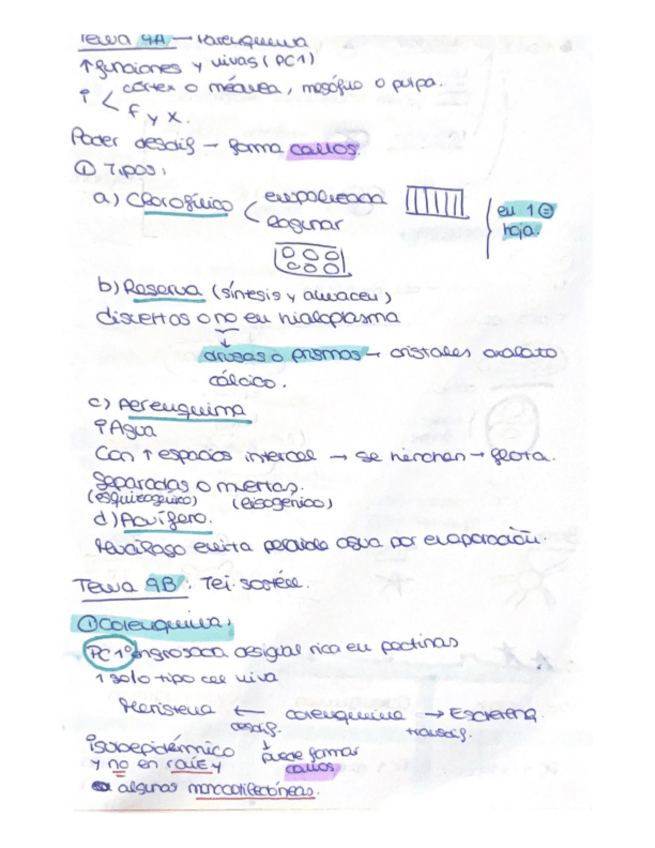 Tema 9A — Parenquima
↑ funciones y vivas (PC1)
? < córtex o médula, mesófilo o pulpa.
f y x.
Poder desdif — forma callos.
① Tipos:
a) Clorofílico < empalizada
lagunar
en 1 =
hoja.
b) Reserva (síntesis y almacen)
disueltos o no en hialoplasma
↓
drusas o prismas → cristales oxalato
cálcico.
c) Aerenquima
? Agua
Con ↑ espacios intercel → se hinchan → flota.
Separadas o muertas.
(esquizogénico) (lisogénico)
d) Acuífero.
Mucílago evita perdida agua por evaporación.
Tema 9B: Tej. sostén.
① Colenquima:
PC 1º engrosada desigual rica en pectinas
1 solo tipo cel viva
Meristema ← colenquima → Esclerenq.
desdif. transdif.
? Subepidérmico ↓ puede formar
y no en raíz y callos
algunas monocotiledóneas.